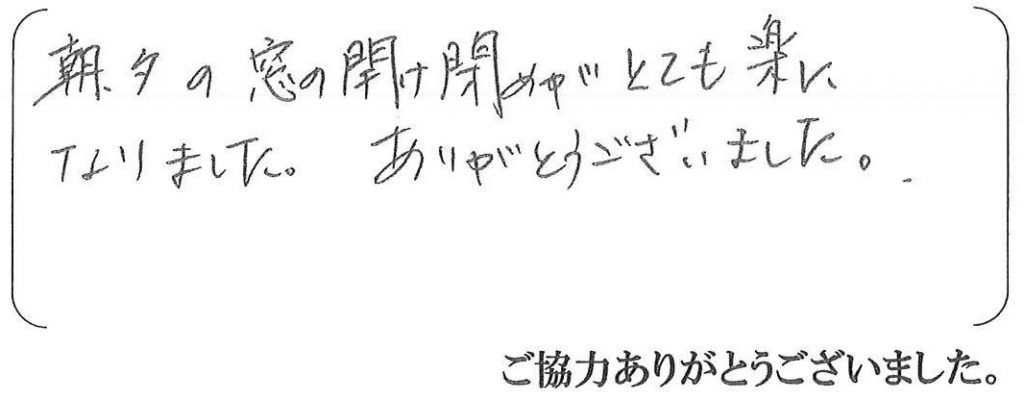 朝夕の窓の開け閉めがとても楽に
なりました。 ありがとうございました。
ご協力ありがとうございました。